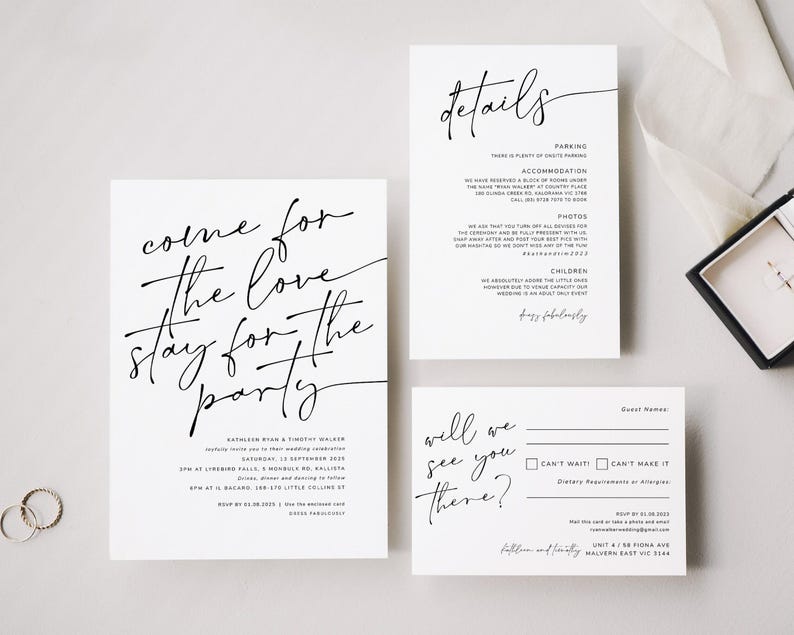 come for
the love
stay for the
party
KATHLEEN RYAN & TIMOTHY WALKER
Joyfully invite you to their wedding celebration
SATURDAY, 13 SEPTEMBER 2025
3PM AT LYREBIRD FALLS, 5 MONBULK RD, KALLISTA
Drinks, dinner and dancing to follow
6PM AT IL BACARO, 168-170 LITTLE COLLINS ST
RSVP BY 01.08.2025 | Use the enclosed card
DRESS FABULOUSLY
details
PARKING
THERE IS PLENTY OF ONSITE PARKING
ACCOMMODATION
WE HAVE RESERVED A BLOCK OF ROOMS UNDER
THE NAME "RYAN WALKER" AT COUNTRY PLACE
180 OLINDA CREEK RD, KALORAMA VIC 3766
CALL (03) 9728 7070 TO BOOK
PHOTOS
WE ASK THAT YOU TURN OFF ALL DEVISES FOR
THE CEREMONY AND BE FULLY PRESSENT WITH US.
SNAP AWAY AFTER AND POST YOUR BEST PICS WITH
OUR HASHTAG SO WE DON'T MISS ANY OF THE FUN!
#kathandtim2023
CHILDREN
WE ABSOLUTELY ADORE THE LITTLE ONES
HOWEVER DUE TO VENUE CAPACITY OUR
WEDDING IS AN ADULT ONLY EVENT
dress fabulously
will we
see you
there?
Guest Names:
CAN'T WAIT! CAN'T MAKE IT
Dietary Requirements or Allergies:
RSVP BY 01.08.2023
Mail this card or take a photo and email
ryanwalkerwedding@gmail.com
kathleen and timothy
UNIT 4 / 58 FIONA AVE
MALVERN EAST VIC 3144